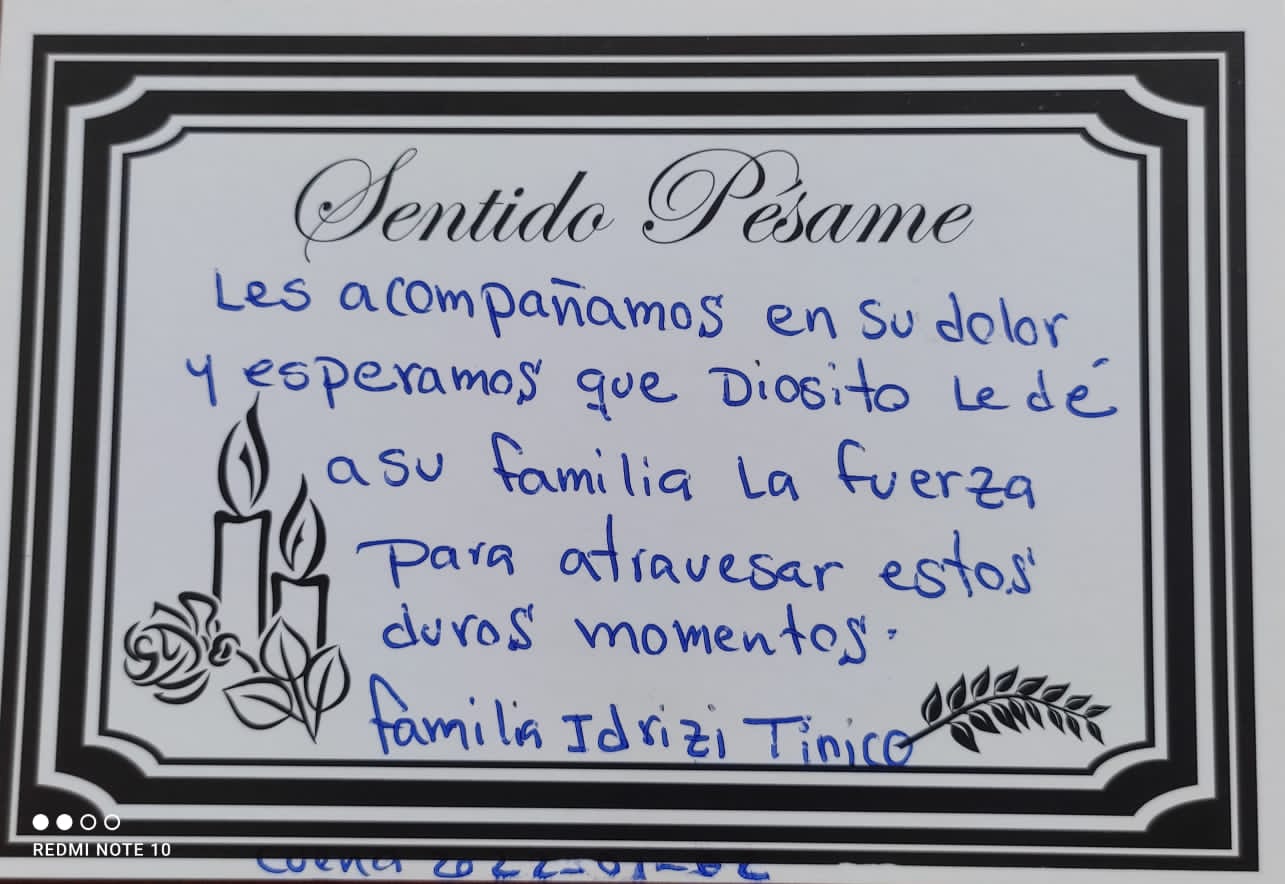 Sentido Pésame
Les acompañamos en su dolor
y esperamos que Diosito le dé
a su familia la fuerza
para atravesar estos
duros momentos.
familia Idrizi Tinico
REDMI NOTE 10